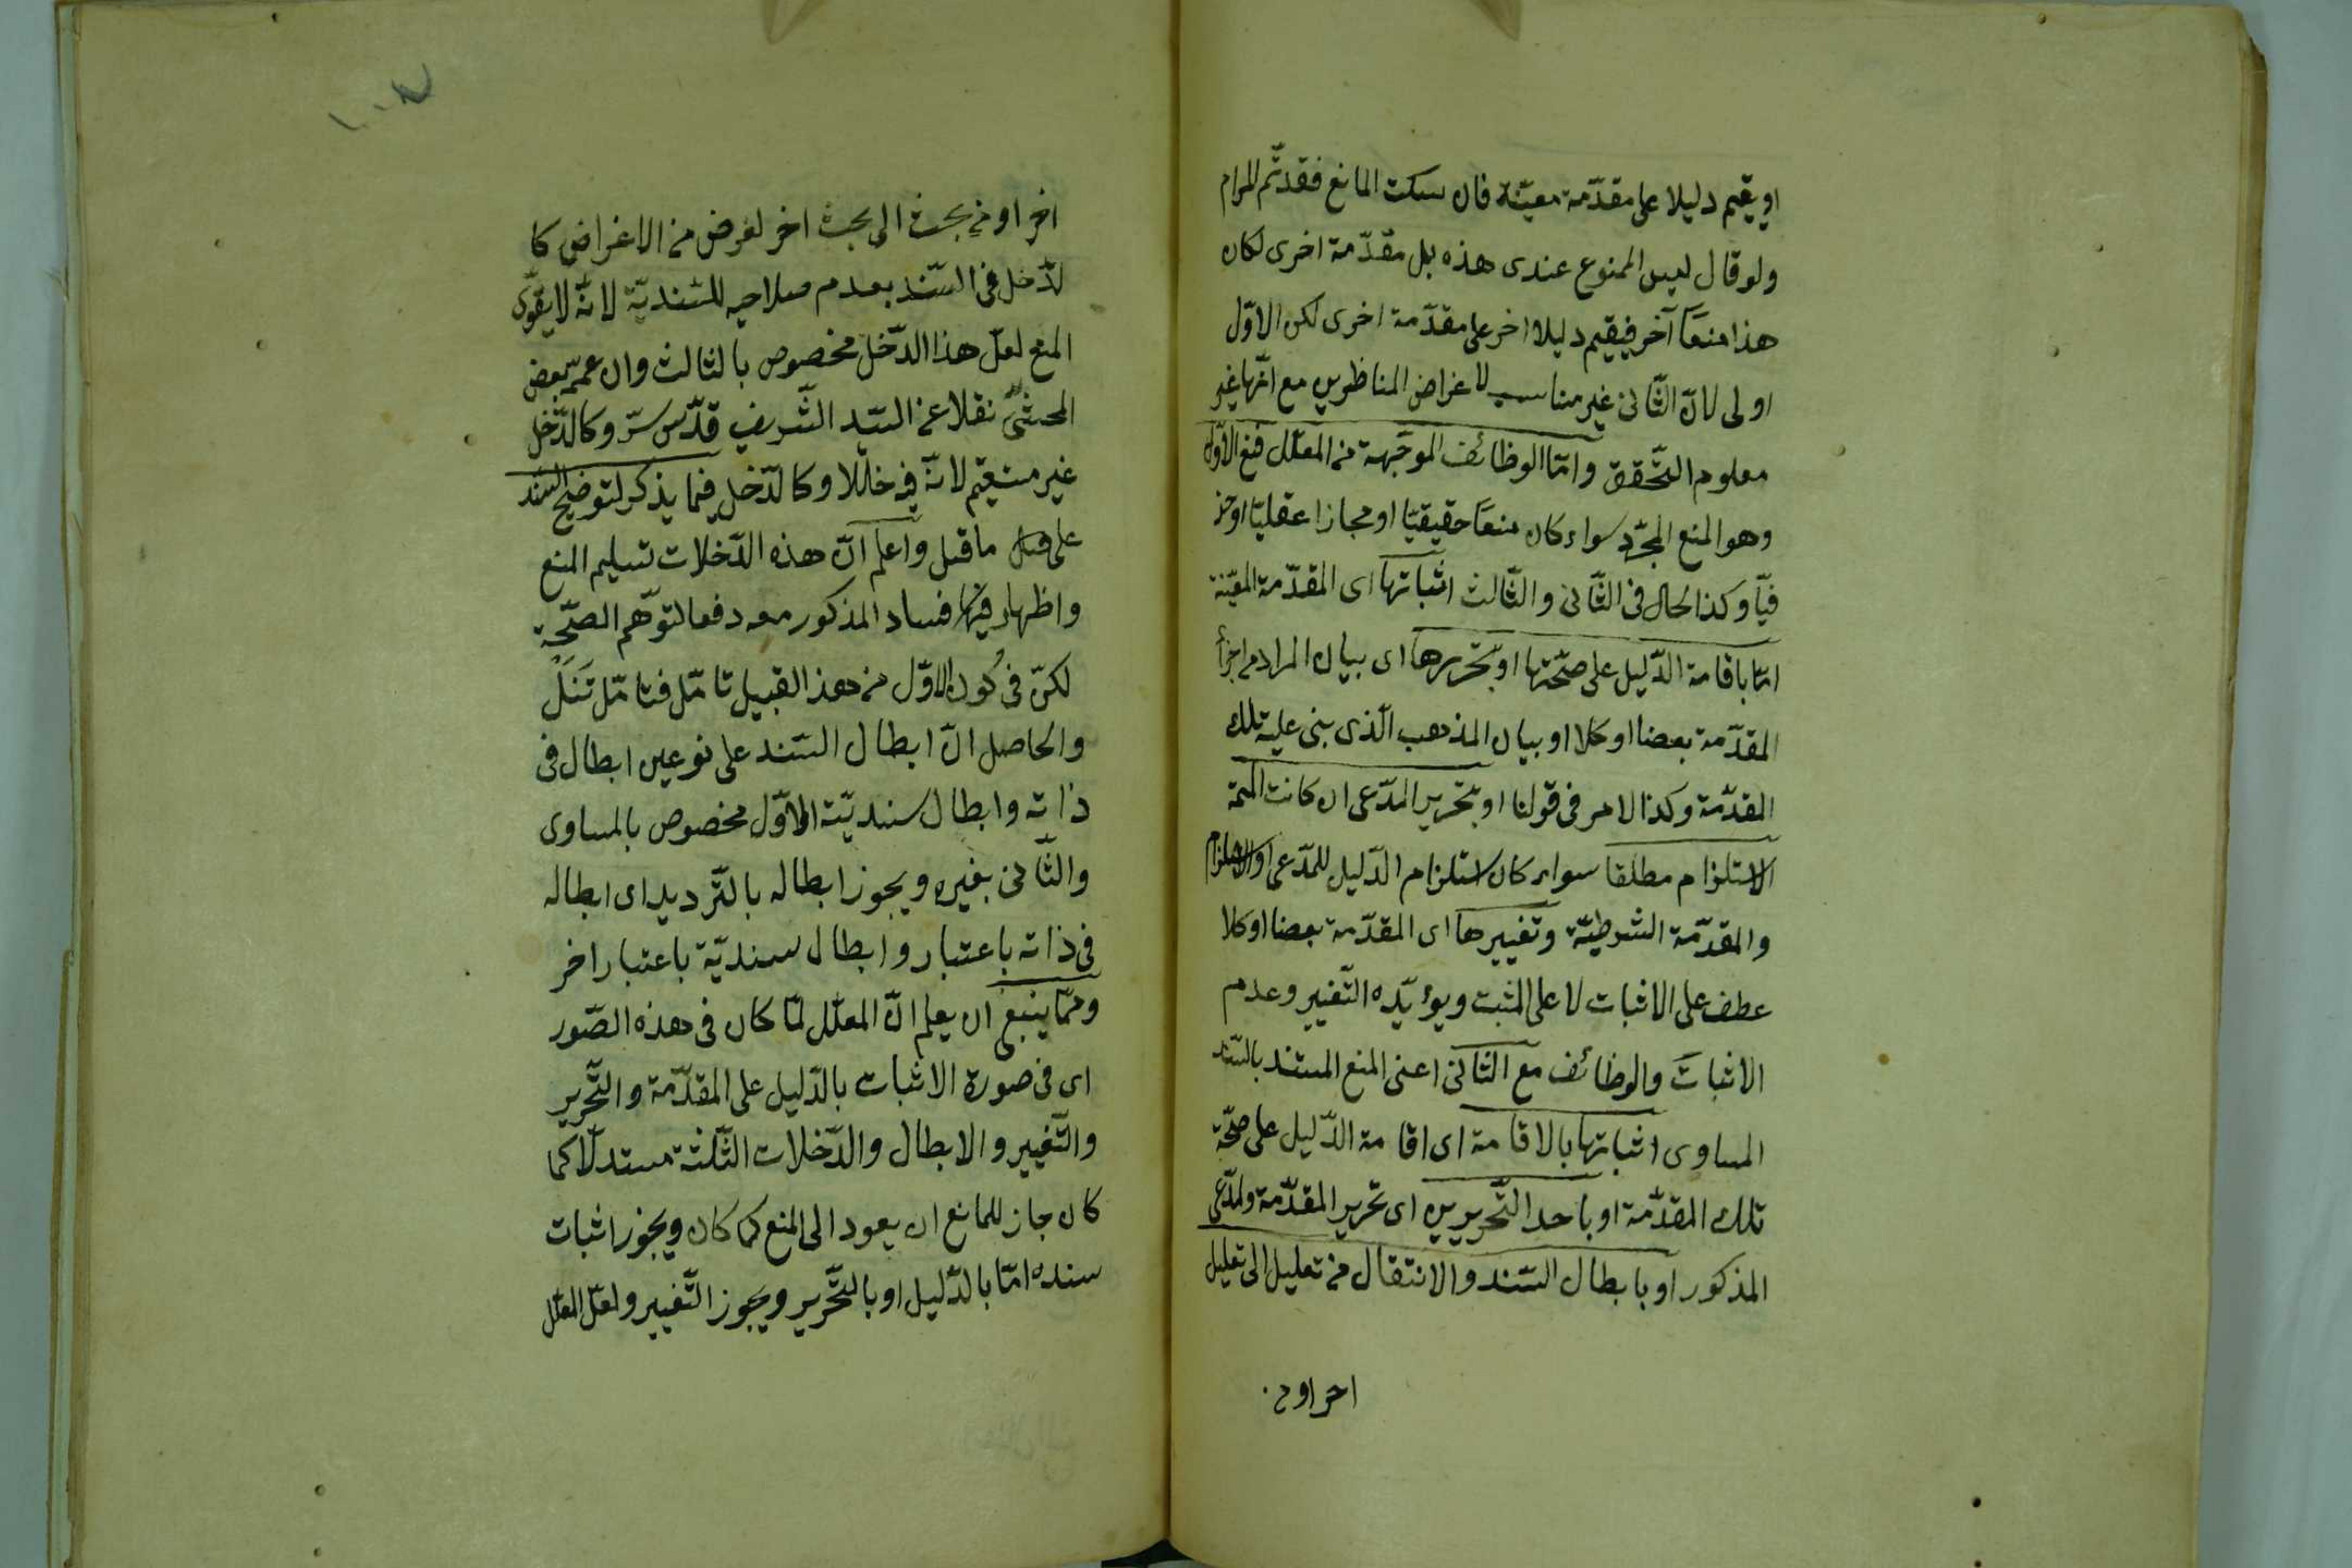 او يقيم دليلا على مقدّمة معيّنة فان سكت المانع فقد تمّ المرام
ولو قال ليس الممنوع عندى هذه بل مقدّمة اخرى لكان
هذا منعًا آخر فيقيم دليلا اخر على مقدّمة اخرى لكن الاوّل
اولى لانّ الثّانى غير مناسب لاغراض المناظرين مع انّها غير
معلوم التّحقق وامّا الوظائف الموجّهة من المعلّل فمع الاوّل
وهو المنع المجرّد سواء كان منعًا حقيقيّا او مجازا عقليّا او حذ
فيّا وكذا الحال فى الثّانى والثّالث اثباتها اى المقدّمة المعيّنة
امّا باقامة الدّليل على صحّتها او بتحريرها اى بيان المراد من اجزأ
المقدّمة بعضا او كلا او بيان المذهب الّذى بنى عليه تلك
المقدّمة وكذا الامر فى قولنا او بتحرير المدّعى ان كانت المقدمة
الاستلزام مطلقا سواء كان استلزام الدّليل للمدّعى او الاستلزام
والمقدّمة الشرطيّة وتغييرها اى المقدّمة بعضا او كلا
عطف على الاثبات لا على المثبت ويؤيّده التّغيير وعدم
الاثبات والوظائف مع الثانى اعنى المنع المستند بالسّند
المساوى اثباتها بالاقامة اى اقامة الدّليل على صحّة
تلك المقدّمة او باحد التّحريرين اى تحرير المقدّمة والمدّعى
المذكور او بابطال السّند والانتقال من تعليل الى تعليل
اخر او من
اخر او من بحث الى بحث اخر لغرض من الاغراض كا
لدّخل فى السّند بعدم صلاحيه للسّنديّة لانّه لا يقوّى
المنع لعلّ هذا الدّخل مخصوص بالثالث وان عمّم بعض
المحشّى نقلا عن السيّد الشّريف قدّس سرّه وكالدّخل
غير مستقيم لانّه فيه خللا وكالدّخل فيما يذكر لتوضيح السّند
على ما قبل واعلم انّ هذه الدّخلات تسليم المنع
واظهار فيها فساد المذكور معه دفعا لتوهّم الصّحّة
لكنّ فى كون الاوّل من هذ القبيل تامّل فتامّل تَنَلْ
والحاصل انّ ابطال السّند على نوعين ابطال فى
ذاته وابطال سنديّته الاوّل مخصوص بالمساوى
والثّانى بغيره ويجوز ابطاله بالتّرديد اى ابطاله
فى ذاته باعتبار وابطال سنديّة باعتبار اخر
وممّا ينبغى ان يعلم انّ المعلّل لمّا كان فى هذه الصّور
اى فى صورة الاثبات بالدّليل على المقدّمة والتّحرير
والتّغيير والابطال والدّخلات الثّلثة مستدلّا كما
كان جاز للمانع ان يعود الى المنع كما كان ويجوز اثبات
سنده امّا بالدّليل او بالتّحرير ويجوز التّغيير ولعلّ المعلّل